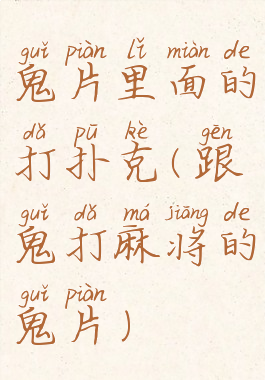 guǐ piàn lǐ miàn de
鬼片里面的
dǎ pū kè gēn
打扑克(跟
guǐ dǎ má jiāng de
鬼打麻将的
guǐ piàn
鬼片)